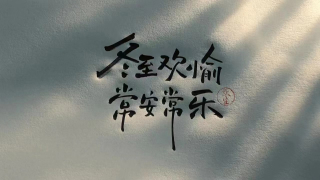 冬至欢愉
常安常乐